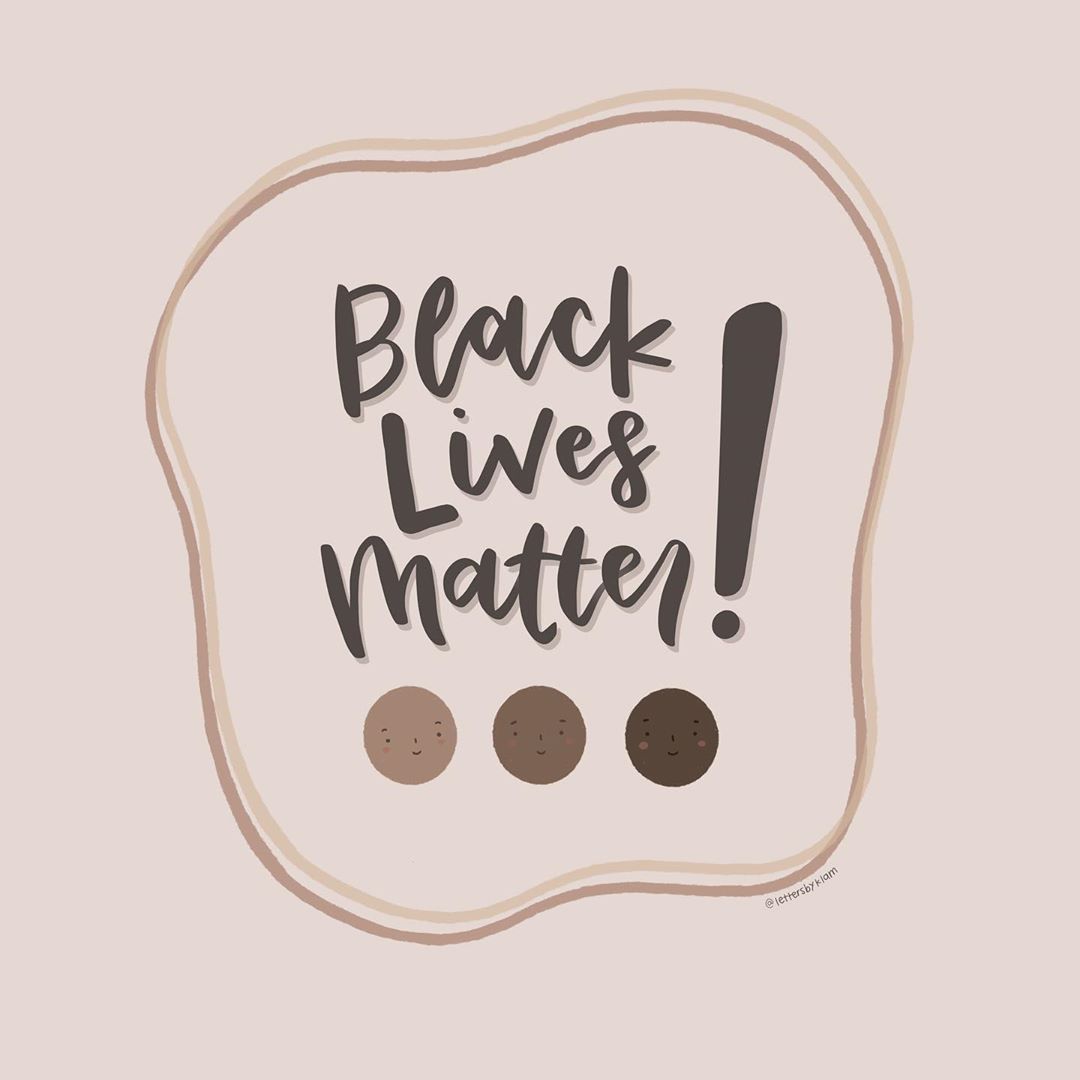 Black
Lives
Matter!
@lettersbyklam